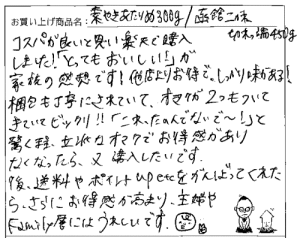 お買い上げ商品名: 素やきあたりめ300g/函館こがね
切れ端450g
コスパが良いと思い楽天で購入
しました!「とってもおいしい!」が
家族の感想です!他店よりお得で、しっかり味がある!
梱包も丁寧にされていて、オマケが2つもついて
きていてビックリ!!「これ、たのんでないで~!」と
驚く程、立派なオマケでお得感があり
なくなったら、又購入したいです。
後、送料やポイントupetcをがんばってくれた
ら、さらにお得感が高まり、主婦や
Family層にはうれしいです。